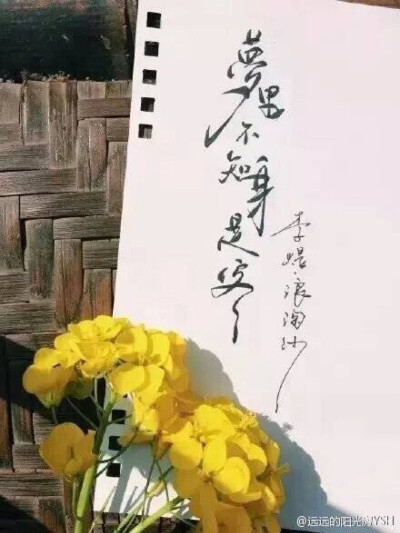 夢里不知身是客
李煜·浪淘沙
@远远的阳光房YSH